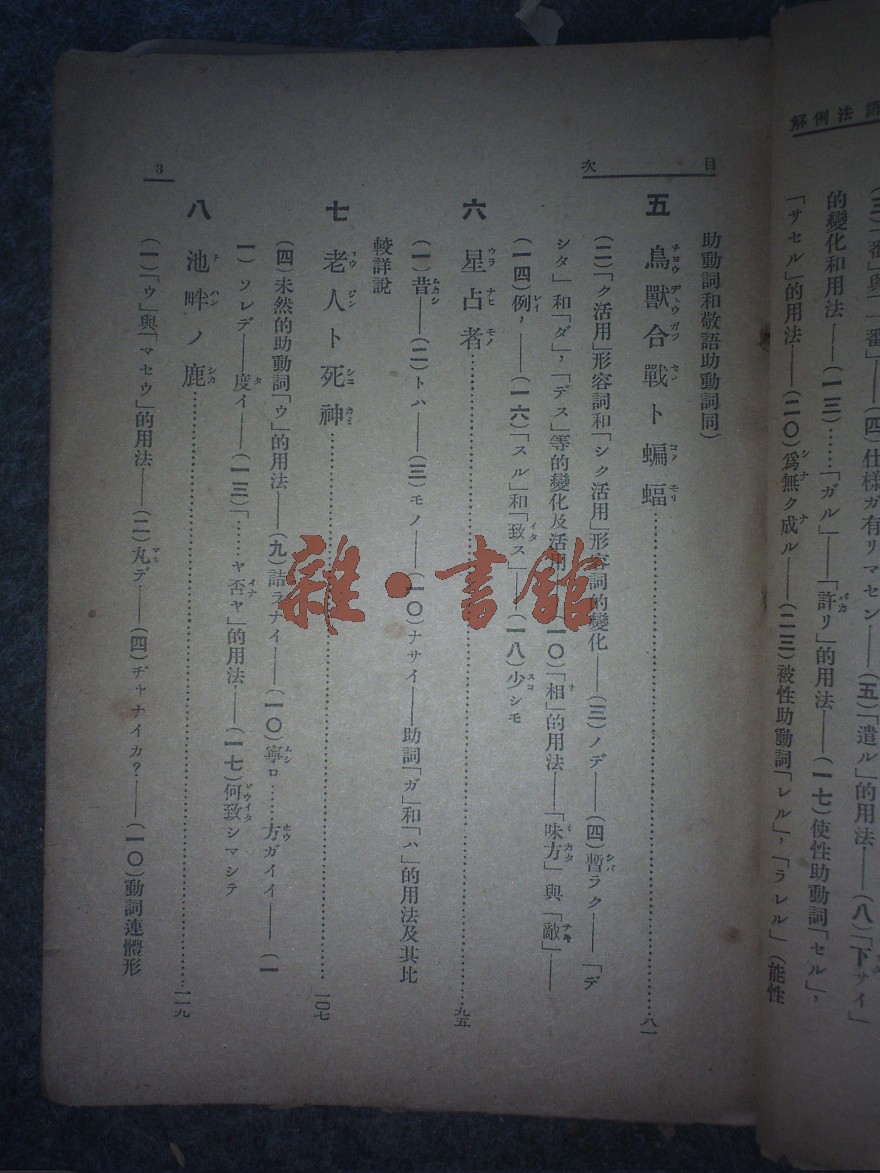 語法例解
(三)一番」與「一番」——(四)仕樣ガ有リマセン——(五)「遣ル」的用法——(八)「下サイ」
的變化和用法——(一三)……「ガル」——「許リ」的用法——(一七)使性助動詞「セル」,
「サセル」的用法——(二〇)爲無ク成ル——(二三)被性助動詞「レル」,「ラレル」(能性
目次
助動詞和敬語助動詞同)
五 鳥獸合戰ト蝙蝠……八一
(二)「ク活用」形容詞和「シク活用」形容詞的變化——(三)ノデ——(四)暫ラク——「デ
シタ」和「ダ」,「デス」等的變化及活用——(一〇)「相」的用法——「味方」與「敵」——
(一四)例,——(一六)「スル」和「致ス」——(一八)少シモ
六 星占者……九五
(一)昔——(二)トハ——(三)モノ——(一〇)ナサイ——助詞「ガ」和「ハ」的用法及其比
較詳說
七 老人ト死神……一〇七
(四)未然的助動詞「ウ」的用法——(九)詰ラナイ——(一〇)寧ロ……方ガイイ——(一
一)ソレデ——度イ——(一三)「……ヤ否ヤ」的用法——(一七)何致シマシテ
八 池畔ノ鹿……一一九
(一)「ウ」與「マセウ」的用法——(二)丸デ——(四)ヂャナイカ?——(一〇)動詞連體形
3
雜·書館